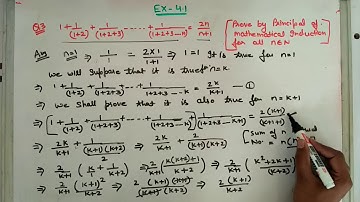 EX-4.1
Q3 1 + 1/(1+2) + 1/(1+2+3) + ------ + 1/(1+2+3---n) = 2n/n+1 [Prove by Principal of mathematical Induction for all n∈N]
Ans n=1 ⇒ 1/1 = 2×1/1+1 ⇒ 1=1 It is true for n=1
we will suppose that it is true for n=k
⇒ 1 + 1/(1+2) + 1/(1+2+3) + ------ + 1/(1+2+3---k) = 2k/k+1 —①
⇒ we shall prove that it is also true for n=k+1
⇒ [1 + 1/(1+2) + 1/(1+2+3) + ------ + 1/(1+2+3---k)] + 1/(1+2+3---k+1) = 2(k+1)/(k+1+1)
⇒ 2k/k+1 + 1/(k+1)(k+2)/2 ⇒ 2k/k+1 + 2/(k+1)(k+2) [Sum of n
⇒ 2/k+1 (k/1 + 1/k+2) ⇒ 2/k+1 [k(k+2)+1/k+2] ⇒ 2/k+1 [k²+2k+1/(k+2)] No. = n(n
⇒ 2/k+1 (k+1)²/k+2 ⇒ 2(k+1)(k+1)/(k+1)(k+2) ⇒ 2(k+1)/k+2